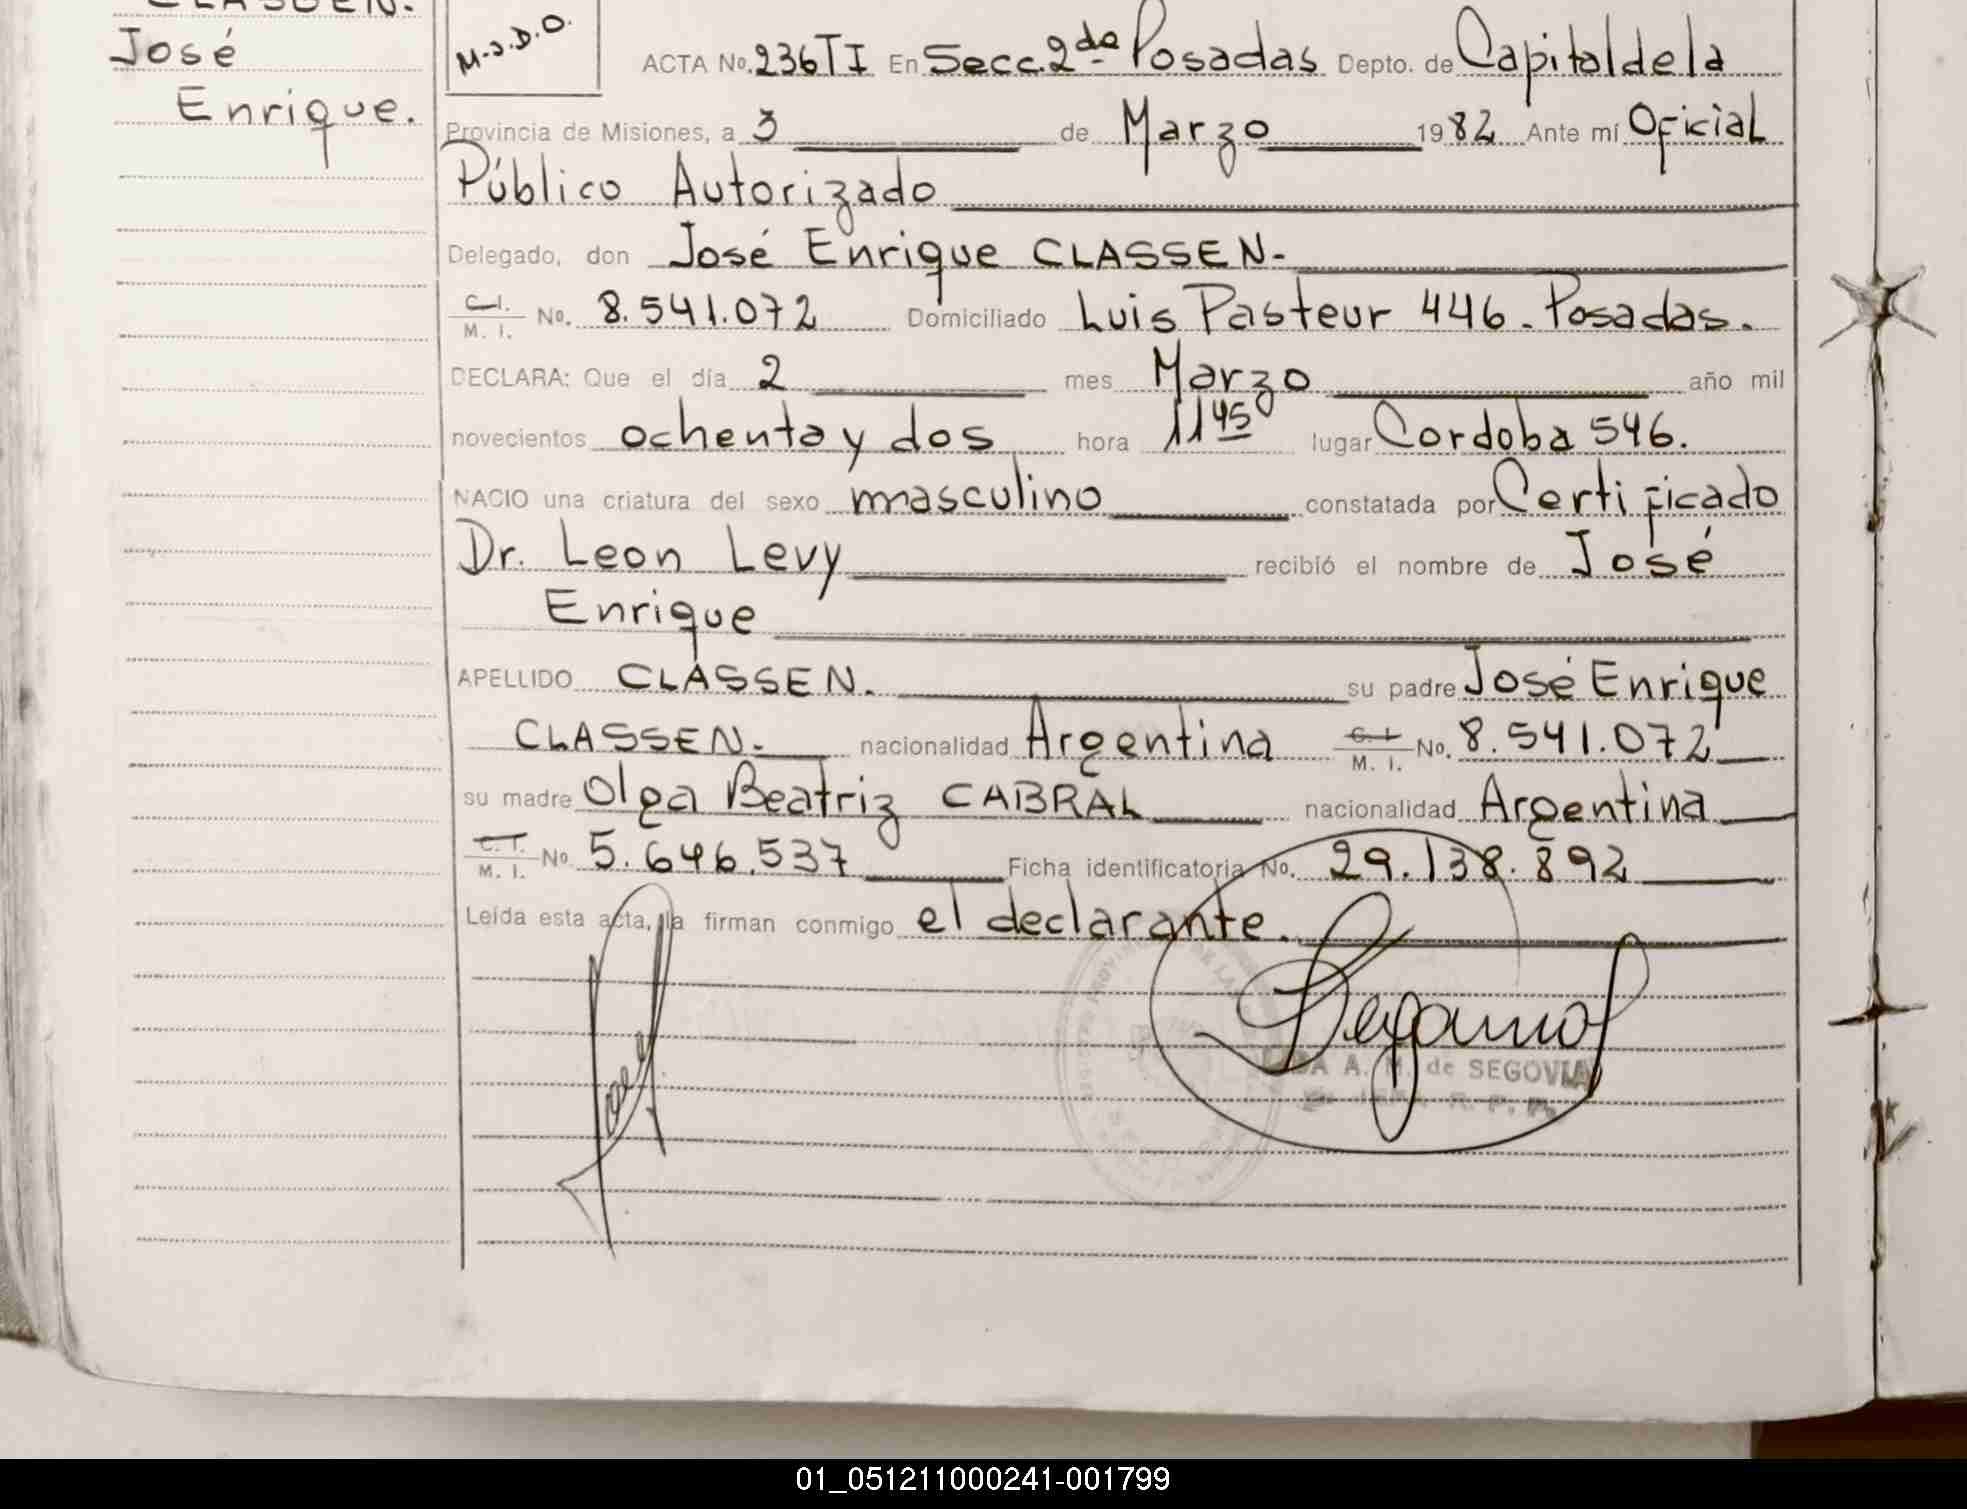 CLASSEN.
José
Enrique.
M.J.D.O.
ACTA No. 236 TI En Secc. 2da Posadas Depto. de Capital de la
Provincia de Misiones, a 3 de Marzo 1982 Ante mí Oficial
Público Autorizado
Delegado, don José Enrique CLASSEN.-
C.I. M. I. No. 8.541.072 Domiciliado Luis Pasteur 446. Posadas.
DECLARA: Que el día 2 mes Marzo año mil
novecientos ochenta y dos hora 11 45 lugar Cordoba 546.
NACIO una criatura del sexo masculino constatada por Certificado
Dr. Leon Levy recibió el nombre de José
Enrique
APELLIDO CLASSEN. su padre José Enrique
CLASSEN.- nacionalidad Argentina C. I. M. I. No. 8.541.072
su madre Olga Beatriz CABRAL nacionalidad Argentina
C. I. M. I. No. 5.646.537 Ficha identificatoria No. 29.138.892
Leída esta acta, la firman conmigo el declarante.
A. M. de SEGOVIA
R. P. P.
01_051211000241-001799